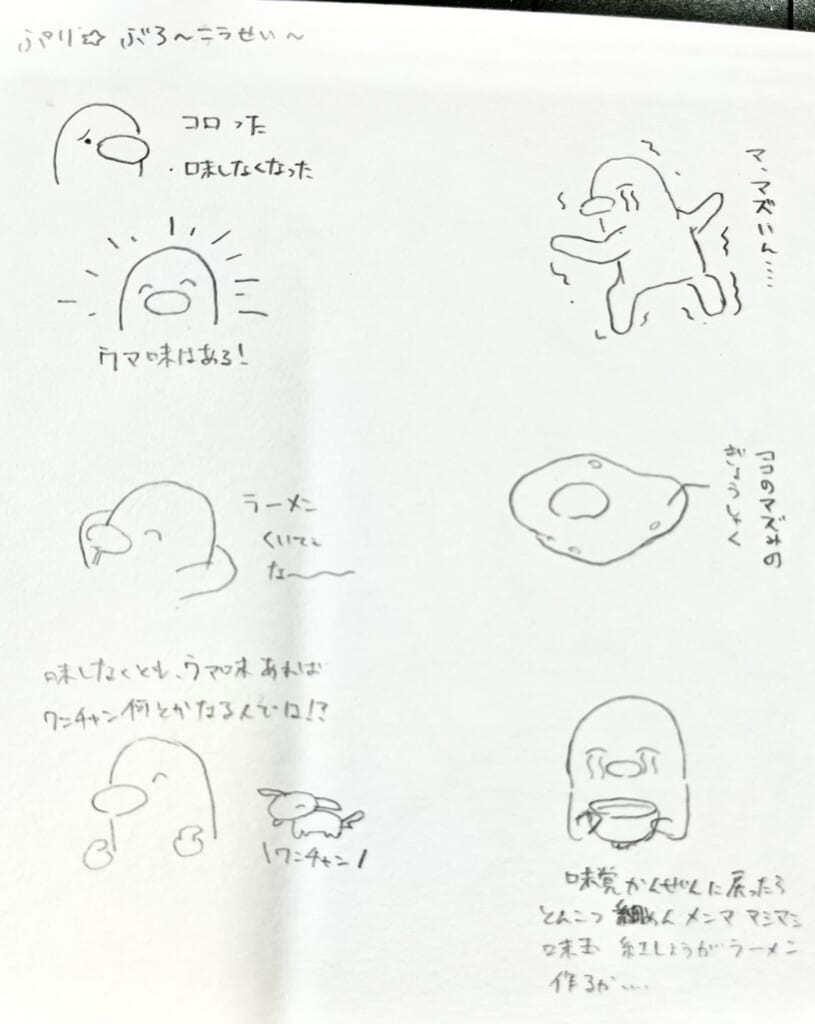 ぷりり☆ ぶろ〜ニラせい〜
コロった
・味しなくなった
ウマ味はある!
ラーメン
くいてぇ
な〜
味しなくとも、ウマ味あれば
ワンチャン何とかなるんでは!?
\ワンチャン/
マ、マズいん....
ココのマズみの
ぎょうしゅく
味覚かんぜんに戻ったら
とんこつ 細めん メンマ マシマシ
味玉 紅しょうがラーメン
作るか....